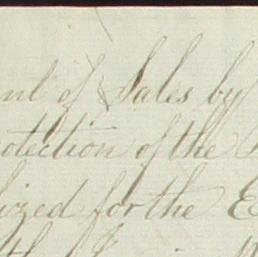 nt of Sales by
otection of the
ized for the E